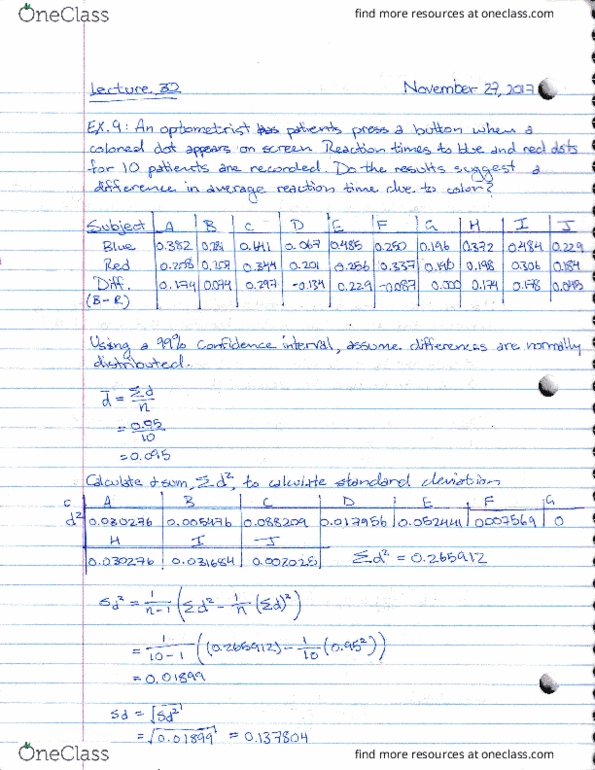 OneClass
find more resources at oneclass.com
Lecture 32 November 27, 2017
EX.9: An optometrist has patients press a button when a
colored dot appears on screen. Reaction times to blue and red dots
for 10 patients are recorded. Do the results suggest a
difference in average reaction time due to color?
Subject A B C D E F G H I J
Blue 0.382 0.067 0.485 0.250 0.196 0.372 0.484 0.229
Red 0.208 0.344 0.201 0.256 0.337 0.198 0.306 0.184
Diff. 0.174 0.074 0.297 -0.134 0.229 -0.087 0.000 0.174 0.178 0.045
(B-R)
Using a 99% confidence interval, assume differences are normally
distributed.
d̄ = Σd/n
= 0.95/10
= 0.095
Calculate sum, Σd², to calculate standard deviation
A B C D E F G
d² 0.030276 0.005476 0.088209 0.017956 0.052441 0.007569 0
H I J
0.030276 0.031684 0.002025 Σd² = 0.265912
sd² = 1/(n-1) (Σd² - 1/n (Σd)²)
= 1/(10-1) ((0.265912) - 1/10 (0.95²))
= 0.01899
sd = √sd²
= √0.01899 = 0.137804
OneClass
find more resources at oneclass.com